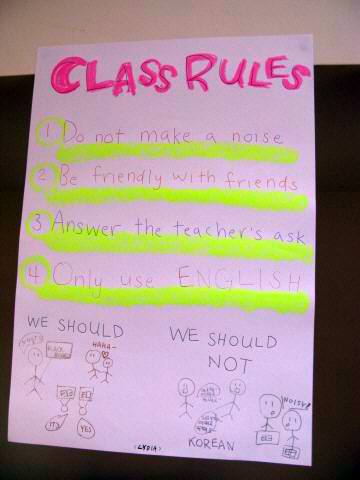 CLASS RULES
1 Do not make a noise
2 Be friendly with friends
3 Answer the teacher's ask
4 Only use ENGLISH
WE SHOULD
WE SHOULD
NOT
HAHA~
BLACK
NOISY!
YES
KOREAN
<LYDIA>